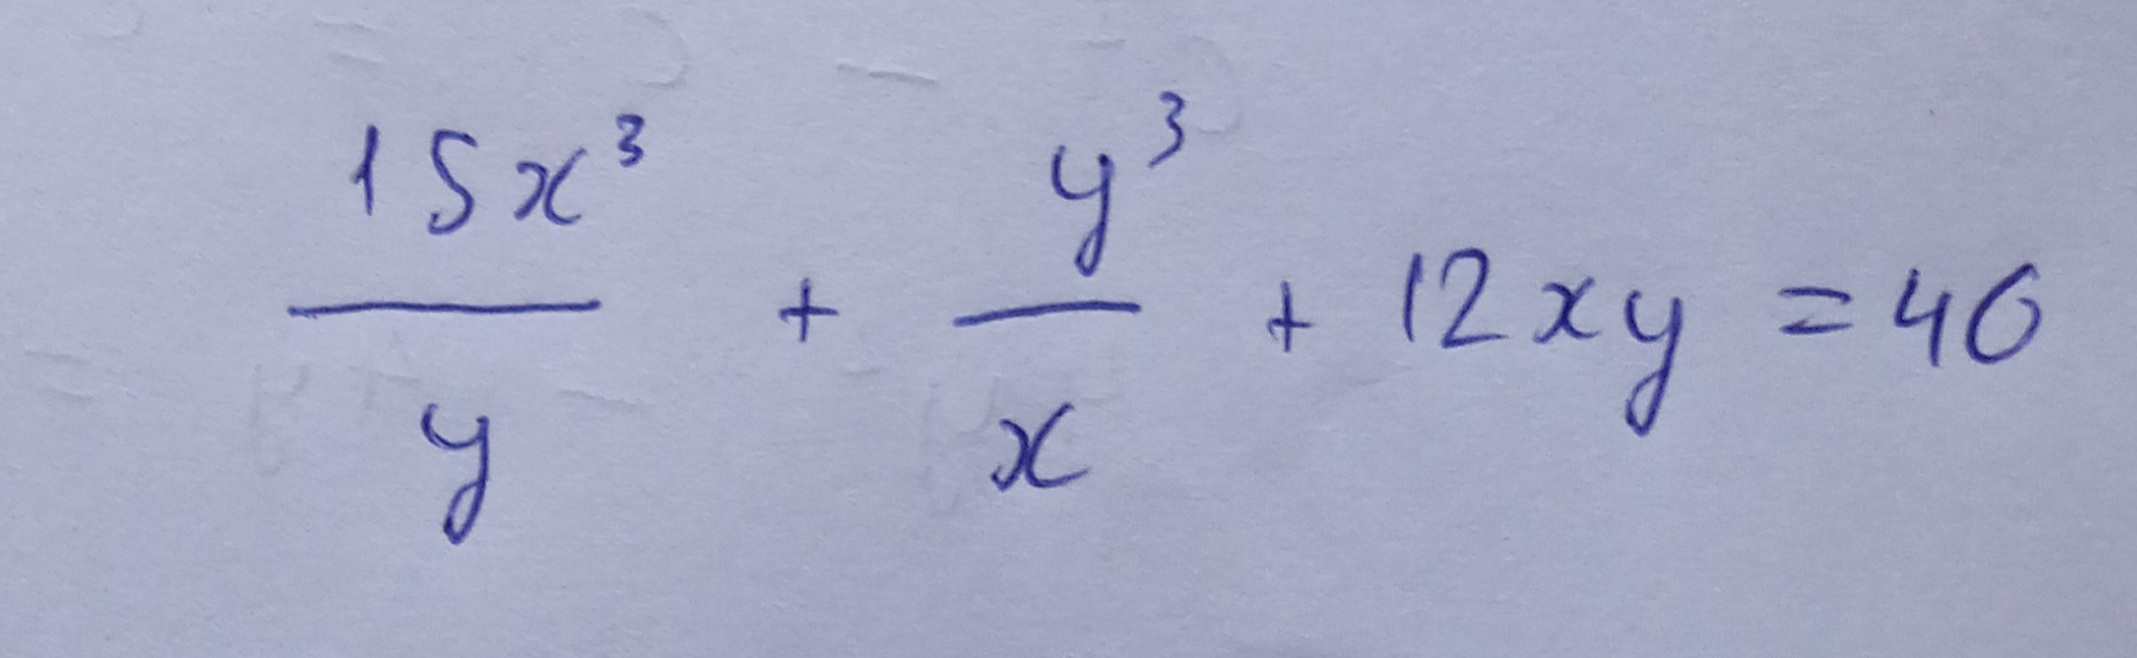 15x³/y + y³/x + 12xy = 40